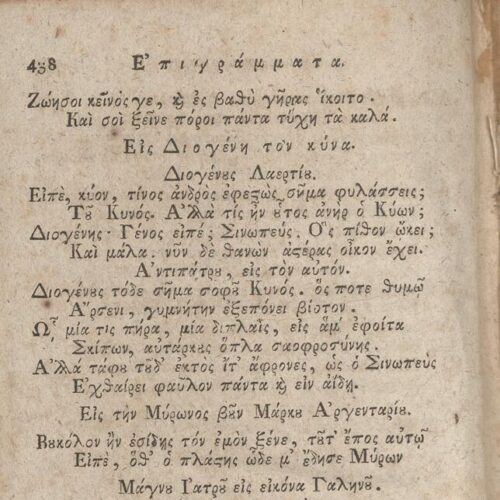 438 Ἐπιγράμματα.
Ζώησοι κεῖνός γε, ϗ ἐς βαθὺ γῆρας ἵκοιτο.
Καὶ σοὶ ξεῖνε πόροι πάντα τύχη τὰ καλά.
Εἰς Διογένη τὸν κύνα.
Διογένους Λαερτίου.
Εἰπὲ, κύον, τίνος ἀνδρὸς ἐφεςὼς σῆμα φυλάσσεις;
Τοῦ Κυνός. Ἀλλὰ τίς ἦν οὗτος ἀνὴρ ὁ Κύων;
Διογένης· Γένος εἰπέ; Σινωπεύς. Ὃς πίθον ᾤκει;
Καὶ μάλα. νῦν δὲ θανὼν ἀςέρας οἶκον ἔχει.
Ἀντιπάτρου, εἰς τὸν αὐτόν.
Διογένους τόδε σῆμα σοφοῦ Κυνός. ὅς ποτε θυμῷ
Ἄρσενι, γυμνήτην ἐξεπόνει βίοτον.
Ὧι μία τις πήρα, μία διπλαῒς, εἷς ἅμ' ἐφοίτα
Σκίπων, αὐτάρκους ὅπλα σαοφροσύνης.
Ἀλλὰ τάφου τοῦδ' ἐκτὸς ἴτ' ἄφρονες, ὡς ὁ Σινωπεὺς
Ἐχθαίρει φαῦλον πάντα ϗ εἰν ἀΐδῃ.
Εἰς τὴν Μύρωνος βοῦν Μάρκου Ἀργενταρίου.
Βουκόλον ἢν ἐσίδῃς τὸν ἐμὸν ξένε, τοῦτ' ἔπος αὐτῷ
Εἰπὲ, ὅθ' ὁ πλάςης ὧδε μ' ἔδησε Μύρων
Μάγνου Ἰατροῦ εἰς εἰκόνα Γαληνοῦ.